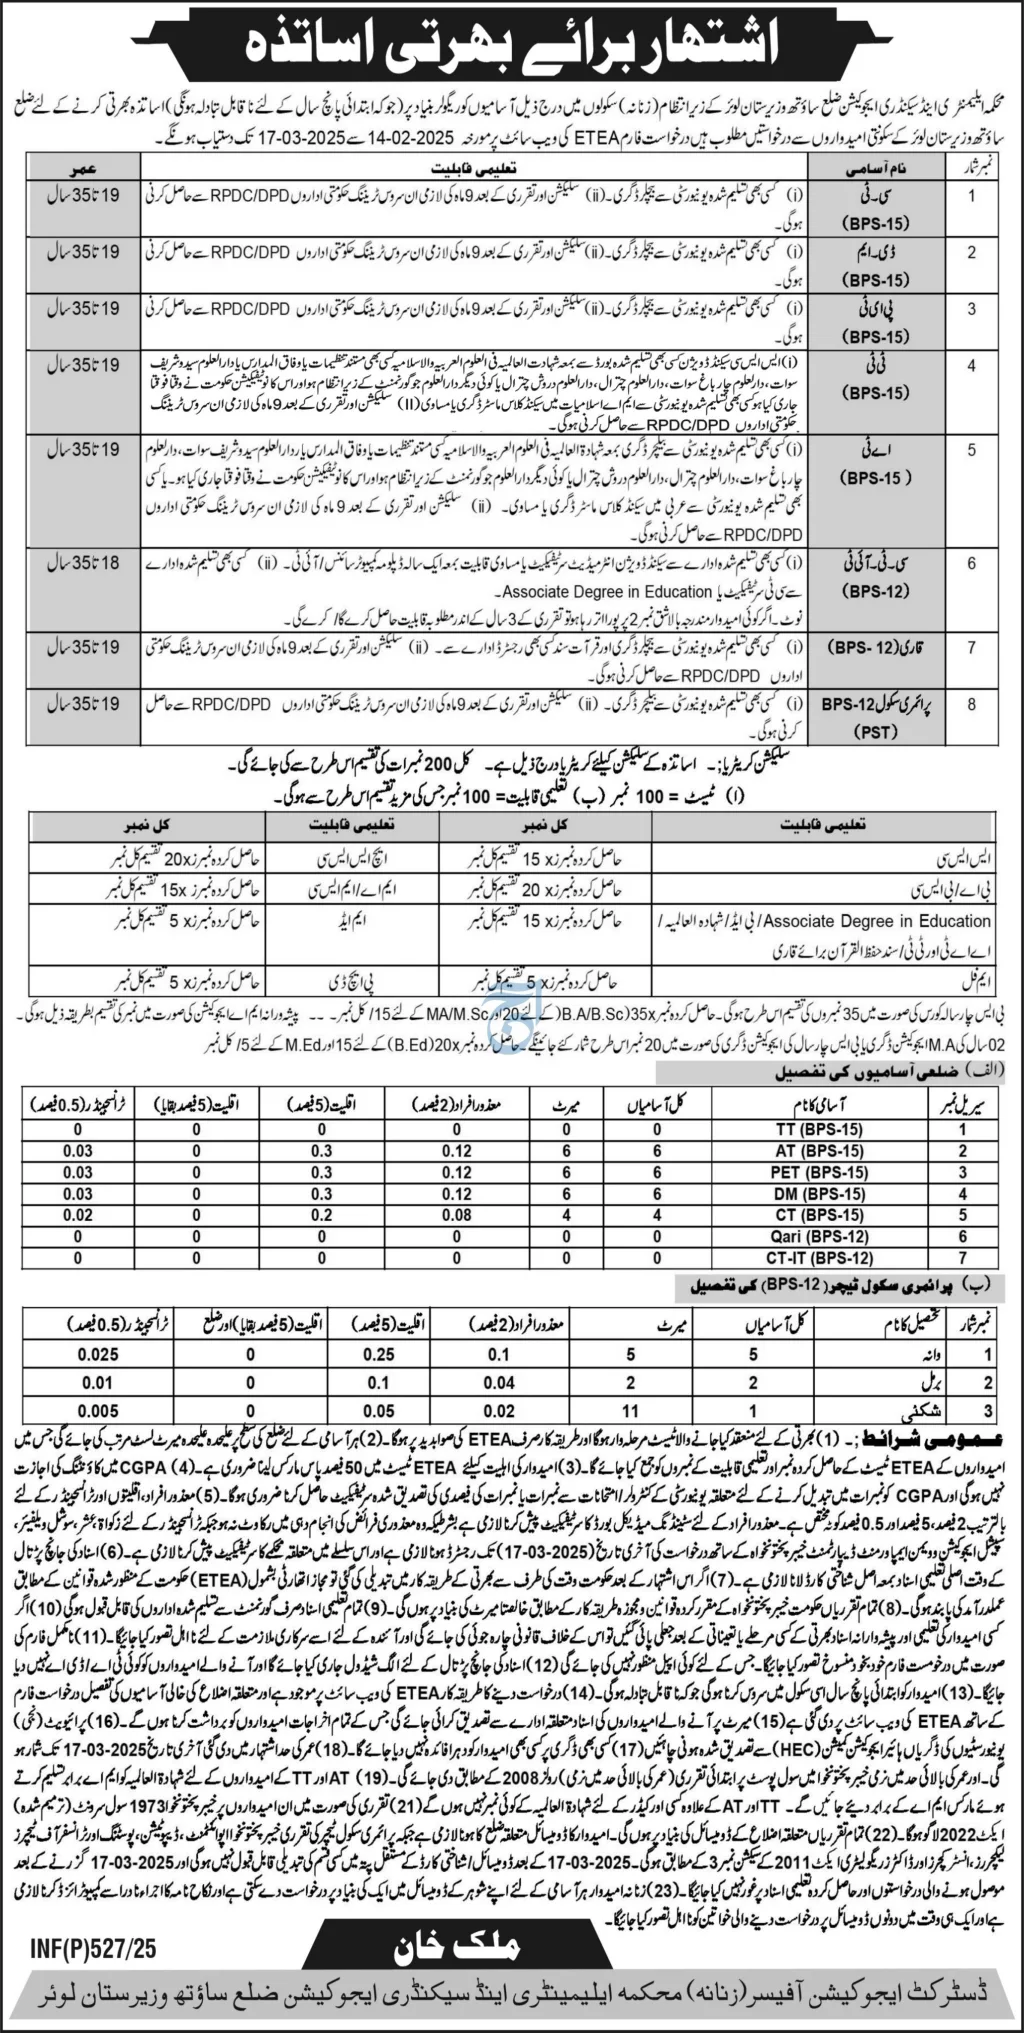 اشتہار برائے بھرتی اساتذہ
محکمہ ایلیمنٹری اینڈ سیکنڈری ایجوکیشن ضلع ساؤتھ وزیرستان لوئر کے زیر انتظام (زنانہ) سکولوں میں درج ذیل آسامیوں کو ریگولر بنیاد پر (جو کہ ابتدائی پانچ سال کے لئے نا قابل تبادلہ ہونگی) اساتذہ بھرتی کرنے کے لئے ضلع
ساؤتھ وزیرستان لوئر کے سکونتی امیدواروں سے درخواستیں مطلوب ہیں درخواست فارم ETEA کی ویب سائٹ پر مورخہ 14-02-2025 سے 17-03-2025 تک دستیاب ہونگے۔
نمبر شمار نام آسامی تعلیمی قابلیت عمر
1 سی۔ٹی (BPS-15) (i) کسی بھی تسلیم شدہ یونیورسٹی سے بیچلر ڈگری۔ (ii) سلیکشن اور تقرری کے بعد 9 ماہ کی لازمی ان سروس ٹریننگ حکومتی اداروں RPDC/DPD سے حاصل کرنی 19 تا 35 سال
ہوگی۔
2 ڈی۔ایم (BPS-15) (i) کسی بھی تسلیم شدہ یونیورسٹی سے بیچلر ڈگری۔ (ii) سلیکشن اور تقرری کے بعد 9 ماہ کی لازمی ان سروس ٹریننگ حکومتی اداروں RPDC/DPD سے حاصل کرنی 19 تا 35 سال
ہوگی۔
3 پی ای ٹی (BPS-15) (i) کسی بھی تسلیم شدہ یونیورسٹی سے بیچلر ڈگری۔ (ii) سلیکشن اور تقرری کے بعد 9 ماہ کی لازمی ان سروس ٹریننگ حکومتی اداروں RPDC/DPD سے حاصل کرنی 19 تا 35 سال
ہوگی۔
4 ٹی ٹی (BPS-15) (i) ایس ایس سی سیکنڈ ڈویژن کسی بھی تسلیم شدہ بورڈ سے بمعہ شہادت العالمیہ فی العلوم العربیہ والاسلامیہ کسی بھی مستند تنظیمات یا وفاق المدارس یا دارالعلوم سیدو شریف 19 تا 35 سال
سوات، دارالعلوم چارباغ سوات، دارالعلوم چترال، دارالعلوم دروش چترال یا کوئی دیگر دارالعلوم جو گورنمنٹ کے زیر انتظام ہو اور اس کا نوٹیفکیشن حکومت نے وقتا فوقتا
جاری کیا ہو کسی بھی تسلیم شدہ یونیورسٹی سے ایم اے اسلامیات میں سیکنڈ کلاس ماسٹر ڈگری یا مساوی (II) سلیکشن اور تقرری کے بعد 9 ماہ کی لازمی ان سروس ٹریننگ
حکومتی اداروں RPDC/DPD سے حاصل کرنی ہوگی۔
5 اے ٹی (BPS-15) (i) کسی بھی تسلیم شدہ یونیورسٹی سے بیچلر ڈگری بمعہ شہادۃ العالمیہ فی العلوم العربیہ والاسلامیہ کسی مستند تنظیمات یا وفاق المدارس یا دارالعلوم سیدو شریف سوات، دارالعلوم 19 تا 35 سال
چارباغ سوات، دارالعلوم چترال، دارالعلوم دروش چترال یا کوئی دیگر دارالعلوم جو گورنمنٹ کے زیر انتظام ہو اور اس کا نوٹیفکیشن حکومت نے وقتا فوقتا جاری کیا ہو۔ یا کسی
بھی تسلیم شدہ یونیورسٹی سے عربی میں سیکنڈ کلاس ماسٹر ڈگری یا مساوی۔ (ii) سلیکشن اور تقرری کے بعد 9 ماہ کی لازمی ان سروس ٹریننگ حکومتی اداروں
RPDC/DPD سے حاصل کرنی ہوگی۔
6 سی۔ٹی۔آئی ٹی (BPS-12) (i) کسی بھی تسلیم شدہ ادارے سے سیکنڈ ڈویژن انٹرمیڈیٹ سرٹیفکیٹ یا مساوی قابلیت بمعہ ایک سالہ ڈپلومہ کمپیوٹر سائنس/آئی ٹی۔ (ii) کسی بھی تسلیم شدہ ادارے 18 تا 35 سال
سے سی ٹی سرٹیفکیٹ یا Associate Degree in Education۔
نوٹ۔ اگر کوئی امیدوار مندرجہ بالا شق نمبر 2 پر پورا اتر رہا ہو تو تقرری کے 3 سال کے اندر مطلوبہ قابلیت حاصل کرے گا/کرے گی۔
7 قاری (BPS-12) (i) کسی بھی تسلیم شدہ یونیورسٹی سے بیچلر ڈگری اور قرآت سند کسی بھی رجسٹرڈ ادارے سے۔ (ii) سلیکشن اور تقرری کے بعد 9 ماہ کی لازمی ان سروس ٹریننگ حکومتی 19 تا 35 سال
اداروں RPDC/DPD سے حاصل کرنی ہوگی۔
8 پرائمری سکول BPS-12 (PST) (i) کسی بھی تسلیم شدہ یونیورسٹی سے بیچلر ڈگری۔ (ii) سلیکشن اور تقرری کے بعد 9 ماہ کی لازمی ان سروس ٹریننگ حکومتی اداروں RPDC/DPD سے حاصل 19 تا 35 سال
کرنی ہوگی۔
سلیکشن کرائٹیریا:۔ اساتذہ کے سلیکشن کیلئے کرائٹیریا درج ذیل ہے۔ کل 200 نمبرات کی تقسیم اس طرح سے کی جائے گی۔
(ا) ٹیسٹ = 100 نمبر (ب) تعلیمی قابلیت = 100 نمبر جس کی مزید تقسیم اس طرح سے ہوگی۔
تعلیمی قابلیت کل نمبر تعلیمی قابلیت کل نمبر
ایس ایس سی حاصل کردہ نمبرز x 15 تقسیم کل نمبر ایچ ایس ایس سی حاصل کردہ نمبرز x20 تقسیم کل نمبر
بی اے/بی ایس سی حاصل کردہ نمبرز x 20 تقسیم کل نمبر ایم اے/ایم ایس سی حاصل کردہ نمبرز x15 تقسیم کل نمبر
Associate Degree in Education/بی ایڈ/شہادہ العالمیہ/ حاصل کردہ نمبرز x 15 تقسیم کل نمبر ایم ایڈ حاصل کردہ نمبرز x 5 تقسیم کل نمبر
اے اے ٹی اور ٹی ٹی/سند حفظ القرآن برائے قاری
ایم فل حاصل کردہ نمبرز x 5 تقسیم کل نمبر پی ایچ ڈی حاصل کردہ نمبرز x 5 تقسیم کل نمبر
بی ایس چار سالہ کورس کی صورت میں 35 نمبروں کی تقسیم اس طرح ہوگی۔ حاصل کردہ نمبر 35x(B.A/B.Sc کے لئے 20 اور MA/M.Sc کے لئے 15/کل نمبر۔ --- پیشہ ورانہ ایم اے ایجوکیشن کی صورت میں نمبر کی تقسیم بطریقہ ذیل ہوگی۔
02 سال کی M.A ایجوکیشن ڈگری یا بی ایس چار سال کی ایجوکیشن ڈگری کی صورت میں 20 نمبر اس طرح شمار کئے جائینگے۔ حاصل کردہ نمبر 20x(B.Ed) کے لئے 15 اور M.Ed کے لئے 5/کل نمبر
(الف) ضلعی آسامیوں کی تفصیل
سیریل نمبر آسامی کا نام کل آسامیاں میرٹ معذور افراد (2 فیصد) اقلیت (5 فیصد) اقلیت (5 فیصد بقایا) ٹرانسجینڈر (0.5 فیصد)
1 TT (BPS-15) 0 0 0 0 0 0
2 AT (BPS-15) 6 6 0.12 0.3 0 0.03
3 PET (BPS-15) 6 6 0.12 0.3 0 0.03
4 DM (BPS-15) 6 6 0.12 0.3 0 0.03
5 CT (BPS-15) 4 4 0.08 0.2 0 0.02
6 Qari (BPS-12) 0 0 0 0 0 0
7 CT-IT (BPS-12) 0 0 0 0 0 0
(ب) پرائمری سکول ٹیچر (BPS-12) کی تفصیل
نمبر شمار تحصیل کا نام کل آسامیاں میرٹ معذور افراد (2 فیصد) اقلیت (5 فیصد) اقلیت (5 فیصد بقایا) اور ضلع ٹرانسجینڈر (0.5 فیصد)
1 وانہ 5 5 0.1 0.25 0 0.025
2 برمل 2 2 0.04 0.1 0 0.01
3 شکئی 1 11 0.02 0.05 0 0.005
عمومی شرائط:۔ (1) بھرتی کے لئے منعقد کیا جانے والا ٹیسٹ مرحلہ وار ہوگا اور طریقہ کار صرف ETEA کی صوابدید پر ہوگا۔ (2) ہر آسامی کے لئے ضلع کی سطح پر علیحدہ علیحدہ میرٹ لسٹ مرتب کی جائے گی جس میں
امیدواروں کے ETEA ٹیسٹ کے حاصل کردہ نمبر اور تعلیمی قابلیت کے نمبروں کو جمع کیا جائے گا۔ (3) امیدوار کی اہلیت کیلئے ETEA ٹیسٹ میں 50 فیصد پاس مارکس لینا ضروری ہے۔ (4) CGPA میں کاؤنٹنگ کی اجازت
نہیں ہوگی اور CGPA کو نمبرات میں تبدیل کرنے کے لئے متعلقہ یونیورسٹی کے کنٹرولر/امتحانات سے نمبرات یا نمبرات کی فیصدی کی تصدیق شدہ سرٹیفکیٹ حاصل کرنا ضروری ہوگا۔ (5) معذور افراد، اقلیتوں اور ٹرانسجینڈر کے لئے
بالترتیب 2 فیصد، 5 فیصد اور 0.5 فیصد کوٹہ مختص ہے۔ معذور افراد کے لئے سٹینڈنگ میڈیکل بورڈ کا سرٹیفکیٹ پیش کرنا لازمی ہے بشرطیکہ وہ معذوری فرائض کی انجام دہی میں رکاوٹ نہ ہو جبکہ ٹرانسجینڈر کے لئے زکواۃ، عشر، سوشل ویلفیئر،
سپیشل ایجوکیشن و ویمن ایمپاورمنٹ ڈیپارٹمنٹ خیبر پختونخواہ کے ساتھ درخواست کی آخری تاریخ (17-03-2025) تک رجسٹرڈ ہونا لازمی ہے اور اس سلسلے میں متعلقہ محکمے کا سرٹیفکیٹ پیش کرنا لازمی ہے۔ (6) اسناد کی جانچ پڑتال
کے وقت اصلی تعلیمی اسناد بمعہ اصل شناختی کارڈ لانا لازمی ہے۔ (7) اگر اس اشتہار کے بعد حکومت وقت کی طرف سے بھرتی کے طریقہ کار میں تبدیلی کی گئی تو مجاز اتھارٹی بشمول (ETEA) حکومت کے منظور شدہ قوانین کے مطابق
عملدرآمد کی پابند ہوگی۔ (8) تمام تقرریاں حکومت خیبر پختونخواہ کے مقرر کردہ قوانین و مجوزہ طریقہ کار کے مطابق خالصتا میرٹ کی بنیاد پر ہوں گی۔ (9) تمام تعلیمی اسناد صرف گورنمنٹ سے تسلیم شدہ اداروں کی قابل قبول ہوگی (10) اگر
کسی امیدوار کی تعلیمی اور پیشہ ورانہ اسناد بھرتی کے کسی مرحلے یا تعیناتی کے بعد جعلی پائی گئیں تو اس کے خلاف قانونی چارہ جوئی کی جائے گی اور آئندہ کے لئے اسے سرکاری ملازمت کے لئے نا اہل تصور کیا جائیگا۔ (11) نا مکمل فارم کی
صورت میں درخواست فارم خود بخود منسوخ تصور کیا جائیگا۔ جس کے لئے کوئی اپیل منظور نہیں کی جائے گی (12) اسناد کی جانچ پڑتال کے لئے الگ شیڈول جاری کیا جائے گا اور آنے والے امیدواروں کو کوئی ٹی اے/ڈی اے نہیں دیا
جائیگا۔ (13) امیدوار کو ابتدائی پانچ سال اسی سکول میں سروس کرنا ہوگی جو کہ نا قابل تبادلہ ہوگی۔ (14) درخواست دینے کا طریقہ کار ETEA کی ویب سائٹ پر موجود ہے اور متعلقہ اضلاع کی خالی آسامیوں کی تفصیل درخواست فارم
کے ساتھ ETEA کی ویب سائٹ پر دی گئی ہے (15) میرٹ پر آنے والے امیدواروں کی اسناد متعلقہ ادارے سے تصدیق کرائی جائے گی جس کے تمام اخراجات امیدواروں کو برداشت کرنا ہوں گے۔ (16) پرائیویٹ (نجی)
یونیورسٹیوں کی ڈگریاں ہائیر ایجوکیشن کمیشن (HEC) سے تصدیق شدہ ہونی چائیں (17) کسی بھی ڈگری پر کسی بھی امیدوار کو دہرا فائدہ نہیں دیا جائے گا۔ (18) عمر کی حد اشتہار میں دی گئی آخری تاریخ 17-03-2025 تک شمار ہو
گی۔ اور عمر کی بالائی حد میں نرمی خیبر پختونخوا میں سول پوسٹ پر ابتدائی تقرری (عمر کی بالائی حد میں نرمی) رولز 2008 کے مطابق دی جائے گی۔ (19) AT اور TT کے امیدواروں کے لئے شہادۃ العالمیہ کو ایم اے برابر تسلیم کرتے
ہوئے مارکس ایم اے کے برابر دیئے جائیں گے۔ TT اور AT کے علاوہ کسی اور کیڈر کے لئے شہادۃ العالمیہ کے کوئی نمبر نہیں ہوں گے (21) تقرری کی صورت میں ان امیدواروں پر خیبر پختونخوا 1973 سول سرونٹ (ترمیم شدہ)
ایکٹ 2022 لاگو ہوگا۔ (22) تمام تقرریاں متعلقہ اضلاع کے ڈومیسائل کی بنیاد پر ہوں گی۔ امیدوار کا ڈومیسائل متعلقہ ضلع کا ہونا لازمی ہے جبکہ پرائمری سکول ٹیچر کی تقرری خیبر پختونخوا اپوائنٹمنٹ، ڈیپوٹیشن، پوسٹنگ اور ٹرانسفر آف ٹیچرز
لیکچررز، انسٹرکچرز اور ڈاکٹرز ریگولیٹری ایکٹ 2011 کے سیکشن نمبر 3 کے مطابق ہوگی۔ 17-03-2025 کے بعد ڈومیسائل/شناختی کارڈ کے مستقل پتہ میں کسی قسم کی تبدیلی قابل قبول نہیں ہوگی اور 17-03-2025 گزرنے کے بعد
موصول ہونے والی درخواستوں اور حاصل کردہ تعلیمی اسناد پر غور نہیں کیا جائیگا۔ (23) زنانہ امیدوار ہر آسامی کے لئے اپنے شوہر کے ڈومیسائل میں ایک کی بنیاد پر درخواست دے سکتی ہے اور نکاح نامہ کا اجراء نادرا سے کمپیوٹرائزڈ کرنا لازمی
ہے اور ایک ہی وقت میں دونوں ڈومیسائل پر درخواست دینے والی خواتین کو نا اہل تصور کیا جائیگا۔
INF(P)527/25
ملک خان
ڈسٹرکٹ ایجوکیشن آفیسر (زنانہ) محکمہ ایلیمینٹری اینڈ سیکنڈری ایجوکیشن ضلع ساؤتھ وزیرستان لوئر